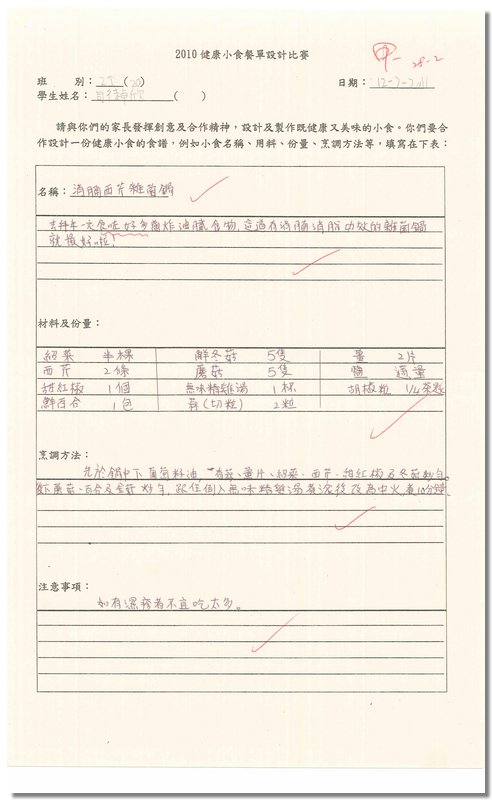 2010 健康小食餐單設計比賽
甲- 28-2
班 別：2E (20) 日期：12-2-2011
學生姓名： ( )
請與你們的家長發揮創意及合作精神，設計及製作既健康又美味的小食。你們要合
作設計一份健康小食的食譜，例如小食名稱、用料、份量、烹調方法等，填寫在下表：
名稱：消脂西芹雜菌鍋
去拜年一大食咗好多煎炸油膩食物，這道有消脂消脹功效的雜菌鍋
就最好啦！
材料及份量：
紹菜 半棵 鮮冬菇 5隻 薑 2片
西芹 2條 蘑菇 5隻 鹽 適量
甜紅椒 1個 無味精雞湯 1杯 胡椒粒 1/4茶匙
鮮百合 1包 蒜(切粒) 2粒
烹調方法：
先於鍋中下 油 薑片、紹菜、西芹、甜紅椒及冬菇
蘑菇、百合及 炒勻，跟住倒入無味精雞湯煮滾後改為中火，煮10分鐘。
注意事項：
如有濕疹者不宜吃太多。